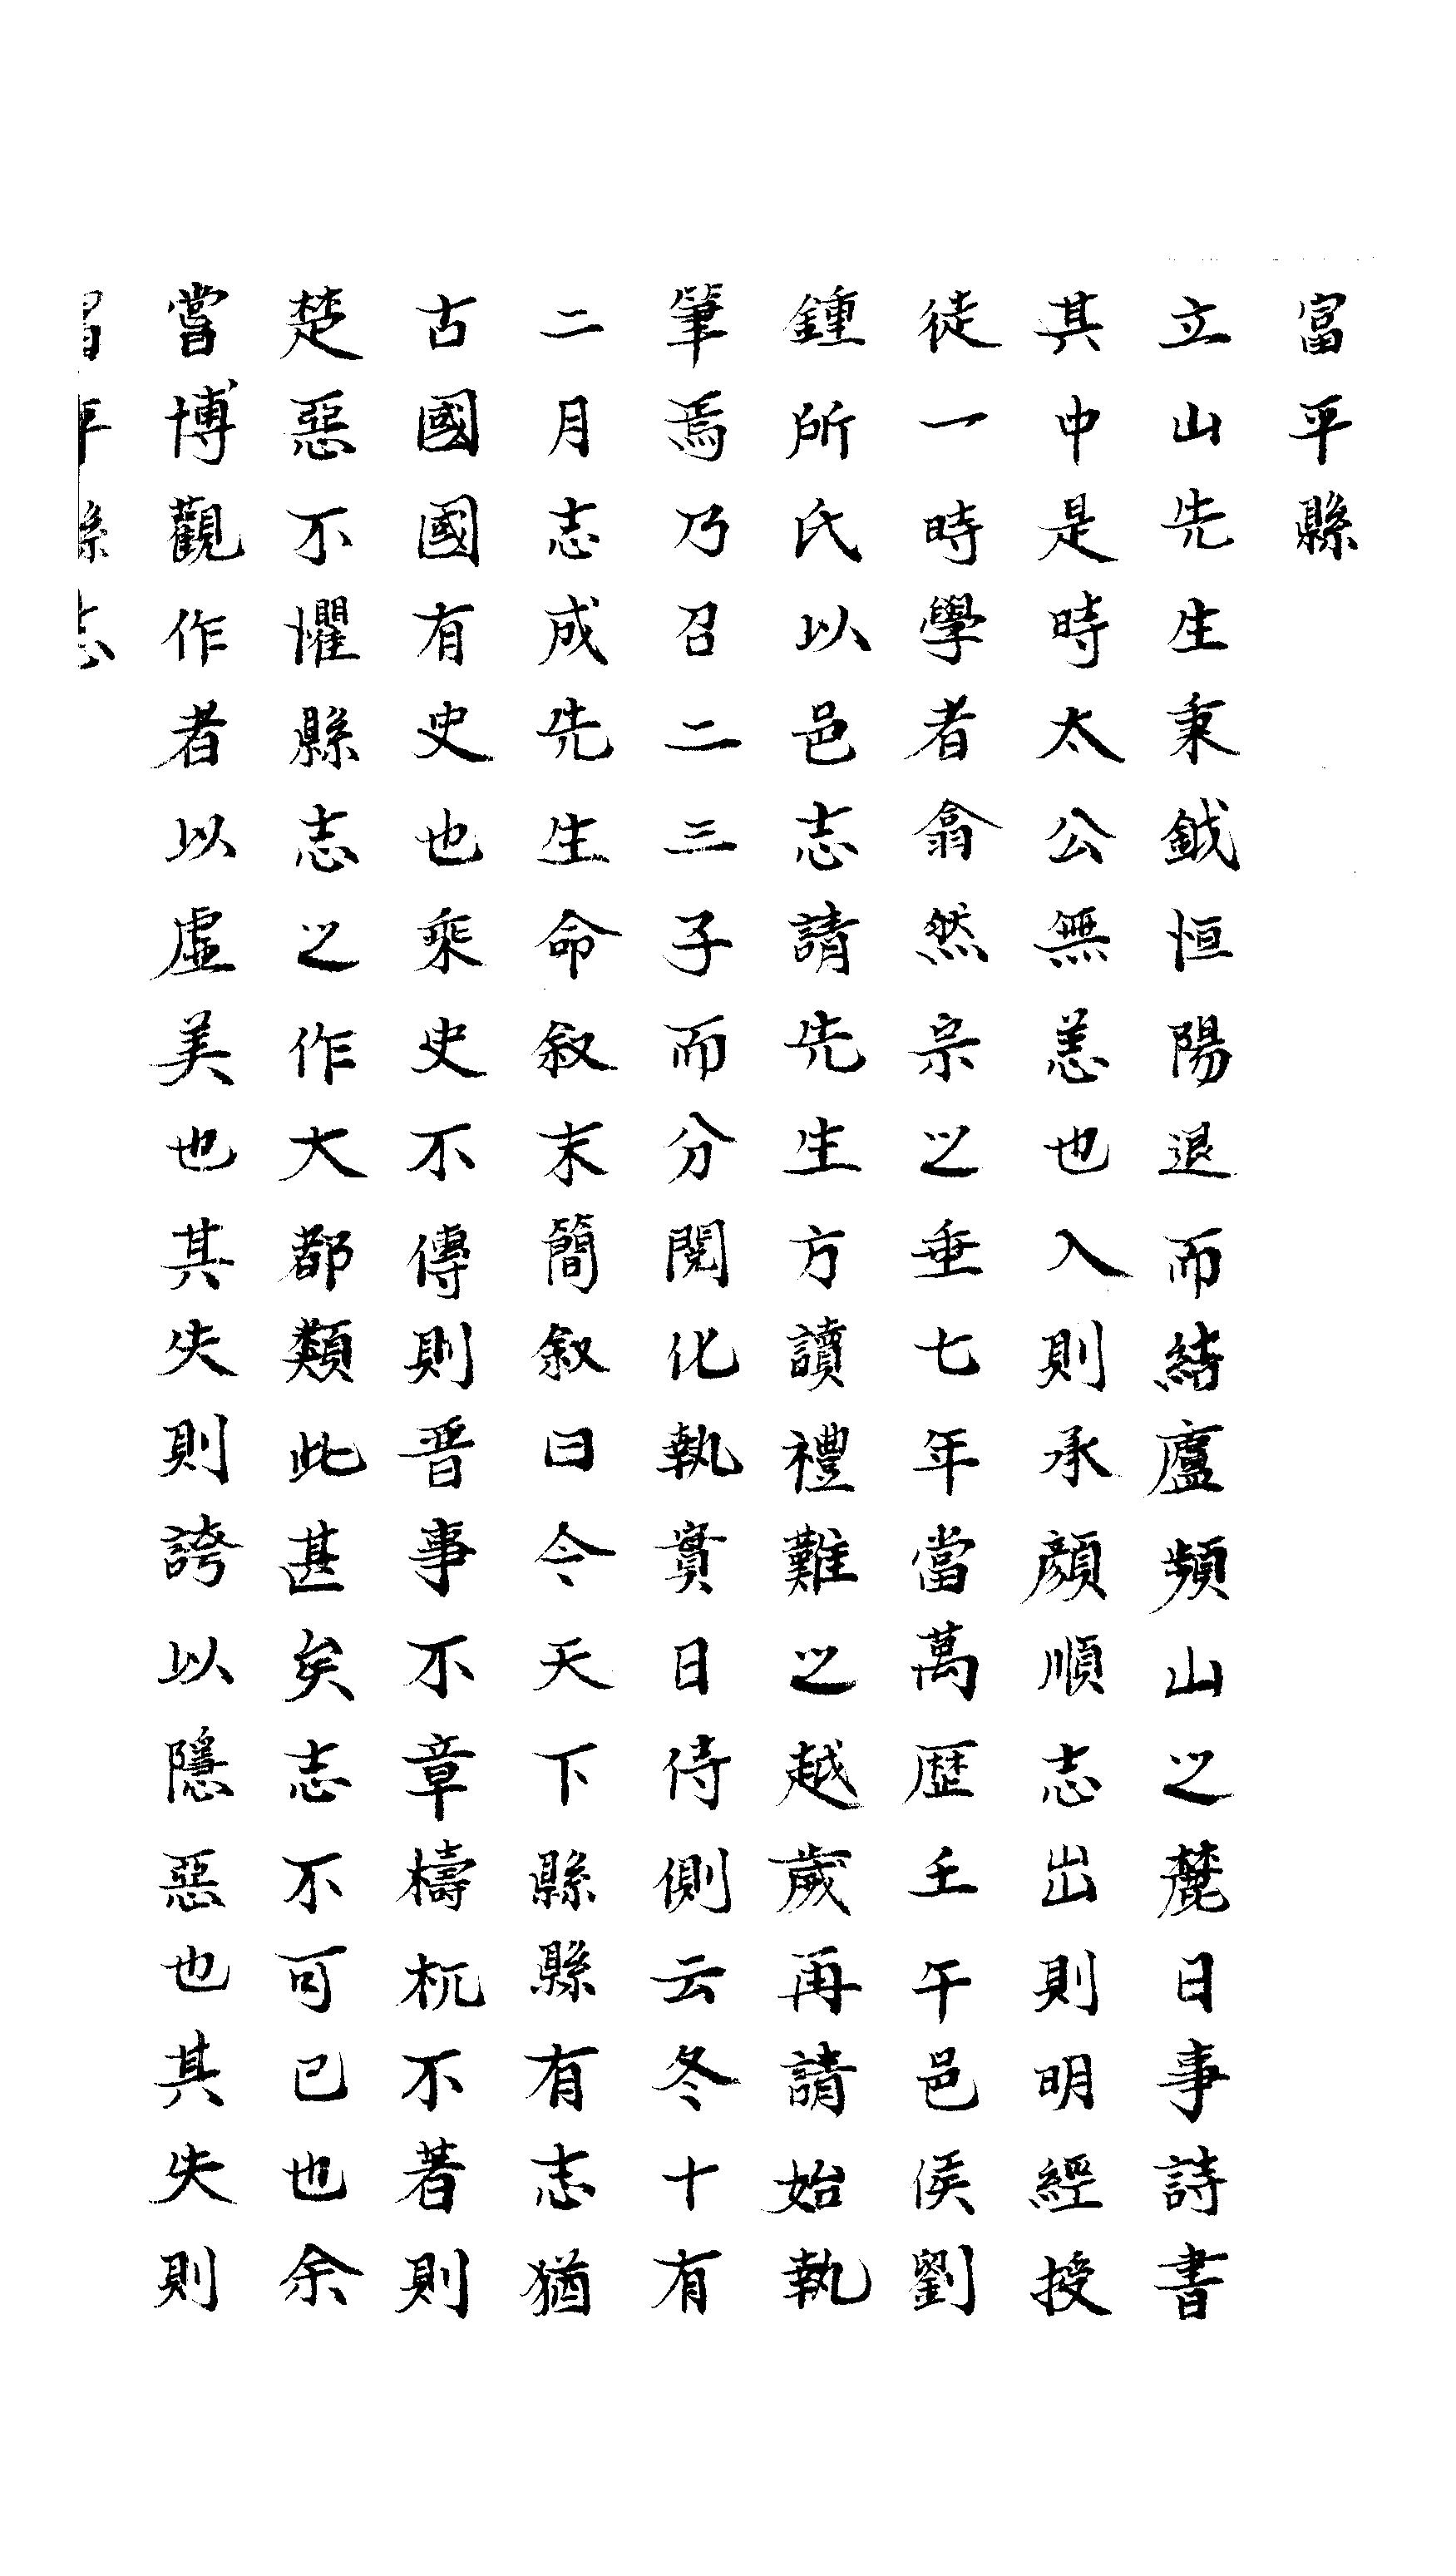 富平縣
立山先生秉鉞恒陽退而結廬頻山之麓日事詩書
其中是時太公無恙也入則承顔順志出則明經授
徒一時學者翕然宗之垂七年當萬歴壬午邑侯劉
鍾所氏以邑志請先生方讀禮難之越歲再請始執
筆焉乃召二三子而分閱化執實日侍側云冬十有
二月志成先生命叙末簡叙曰今天下縣縣有志猶
古國國有史也乘史不傳則晋事不章檮杌不著則
楚惡不懼縣志之作大都類此甚矣志不可已也余
嘗博觀作者以虛美也其失則誇以隱惡也其失則
富平縣志